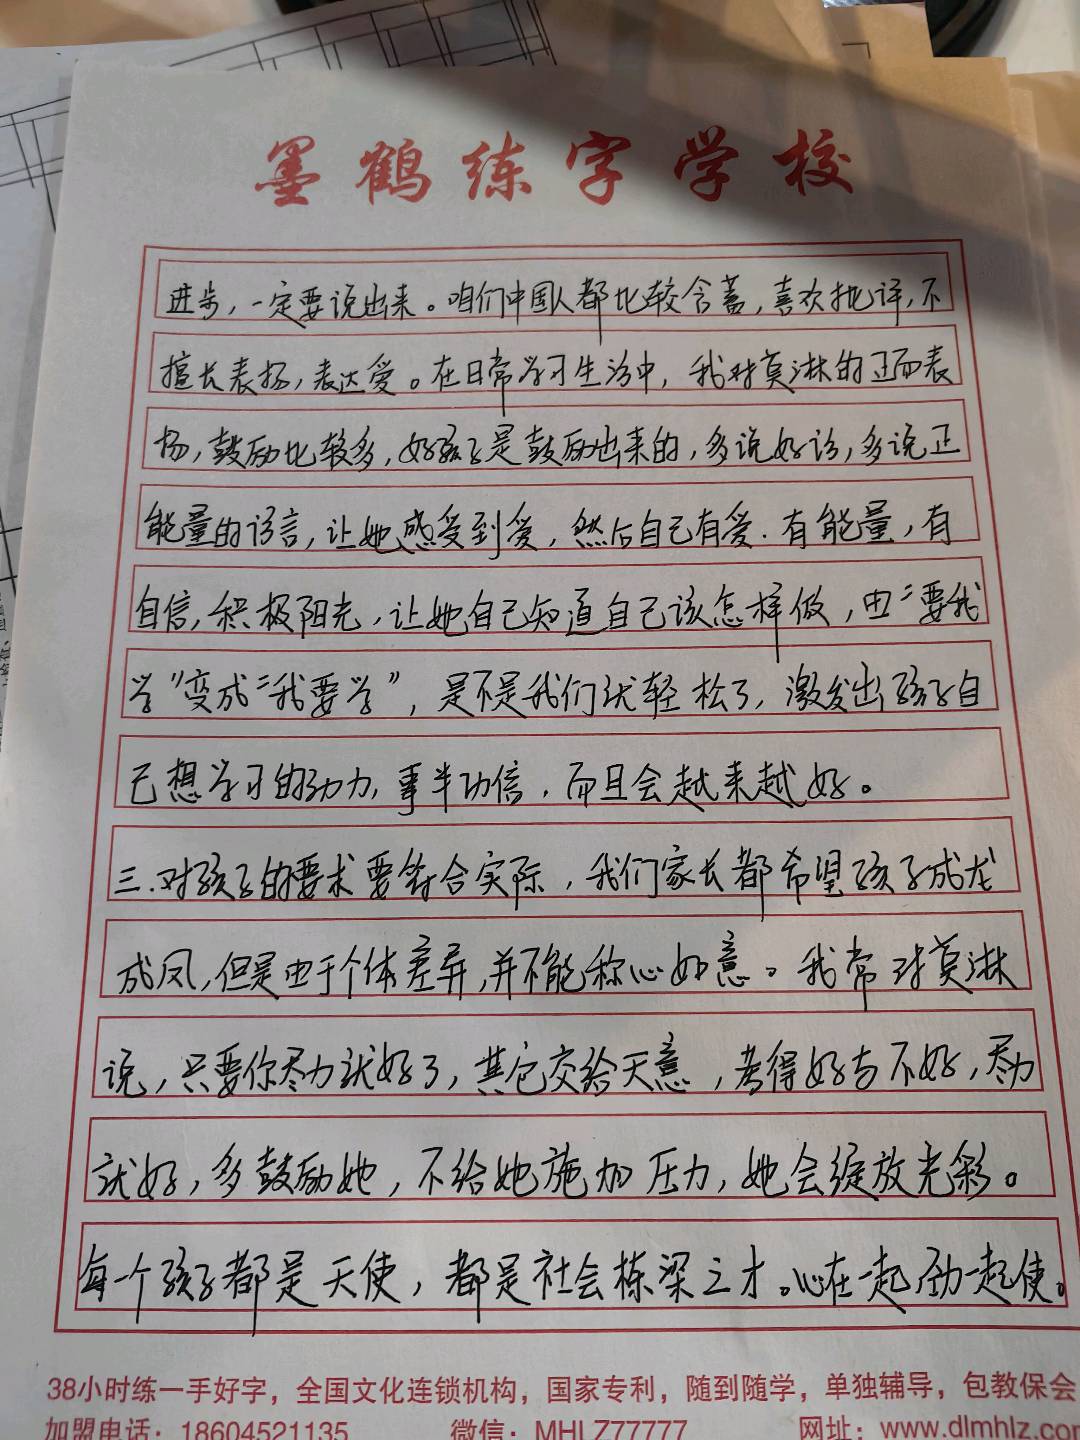 墨鹤练字学校
进步，一定要说出来。咱们中国人都比较含蓄，喜欢批评，不
擅长表扬，表达爱。在日常学习生活中，我对莫淋的正面表
扬，鼓励比较多，好孩子是鼓励出来的，多说好话，多说正
能量的语言，让她感受到爱，然后自己有爱．有能量，有
自信，积极阳光，让她自己知道自己该怎样做，由“要我
学”变成“我要学”，是不是我们就轻松了，激发出孩子自
己想学习的动力，事半功倍，而且会越来越好。
三．对孩子的要求要符合实际，我们家长都希望孩子成龙
成凤，但是由于个体差异，并不能称心如意。我常对莫淋
说，只要你尽力就好了，其它交给天意，考得好与不好，尽力
就好，多鼓励她，不给她施加压力，她会绽放光彩。
每一个孩子都是天使，都是社会栋梁之才。心在一起劲一起使。
38小时练一手好字，全国文化连锁机构，国家专利，随到随学，单独辅导，包教保会
加盟电话：18604521135 微信：MHLZ77777 网址：www.dlmhlz.com